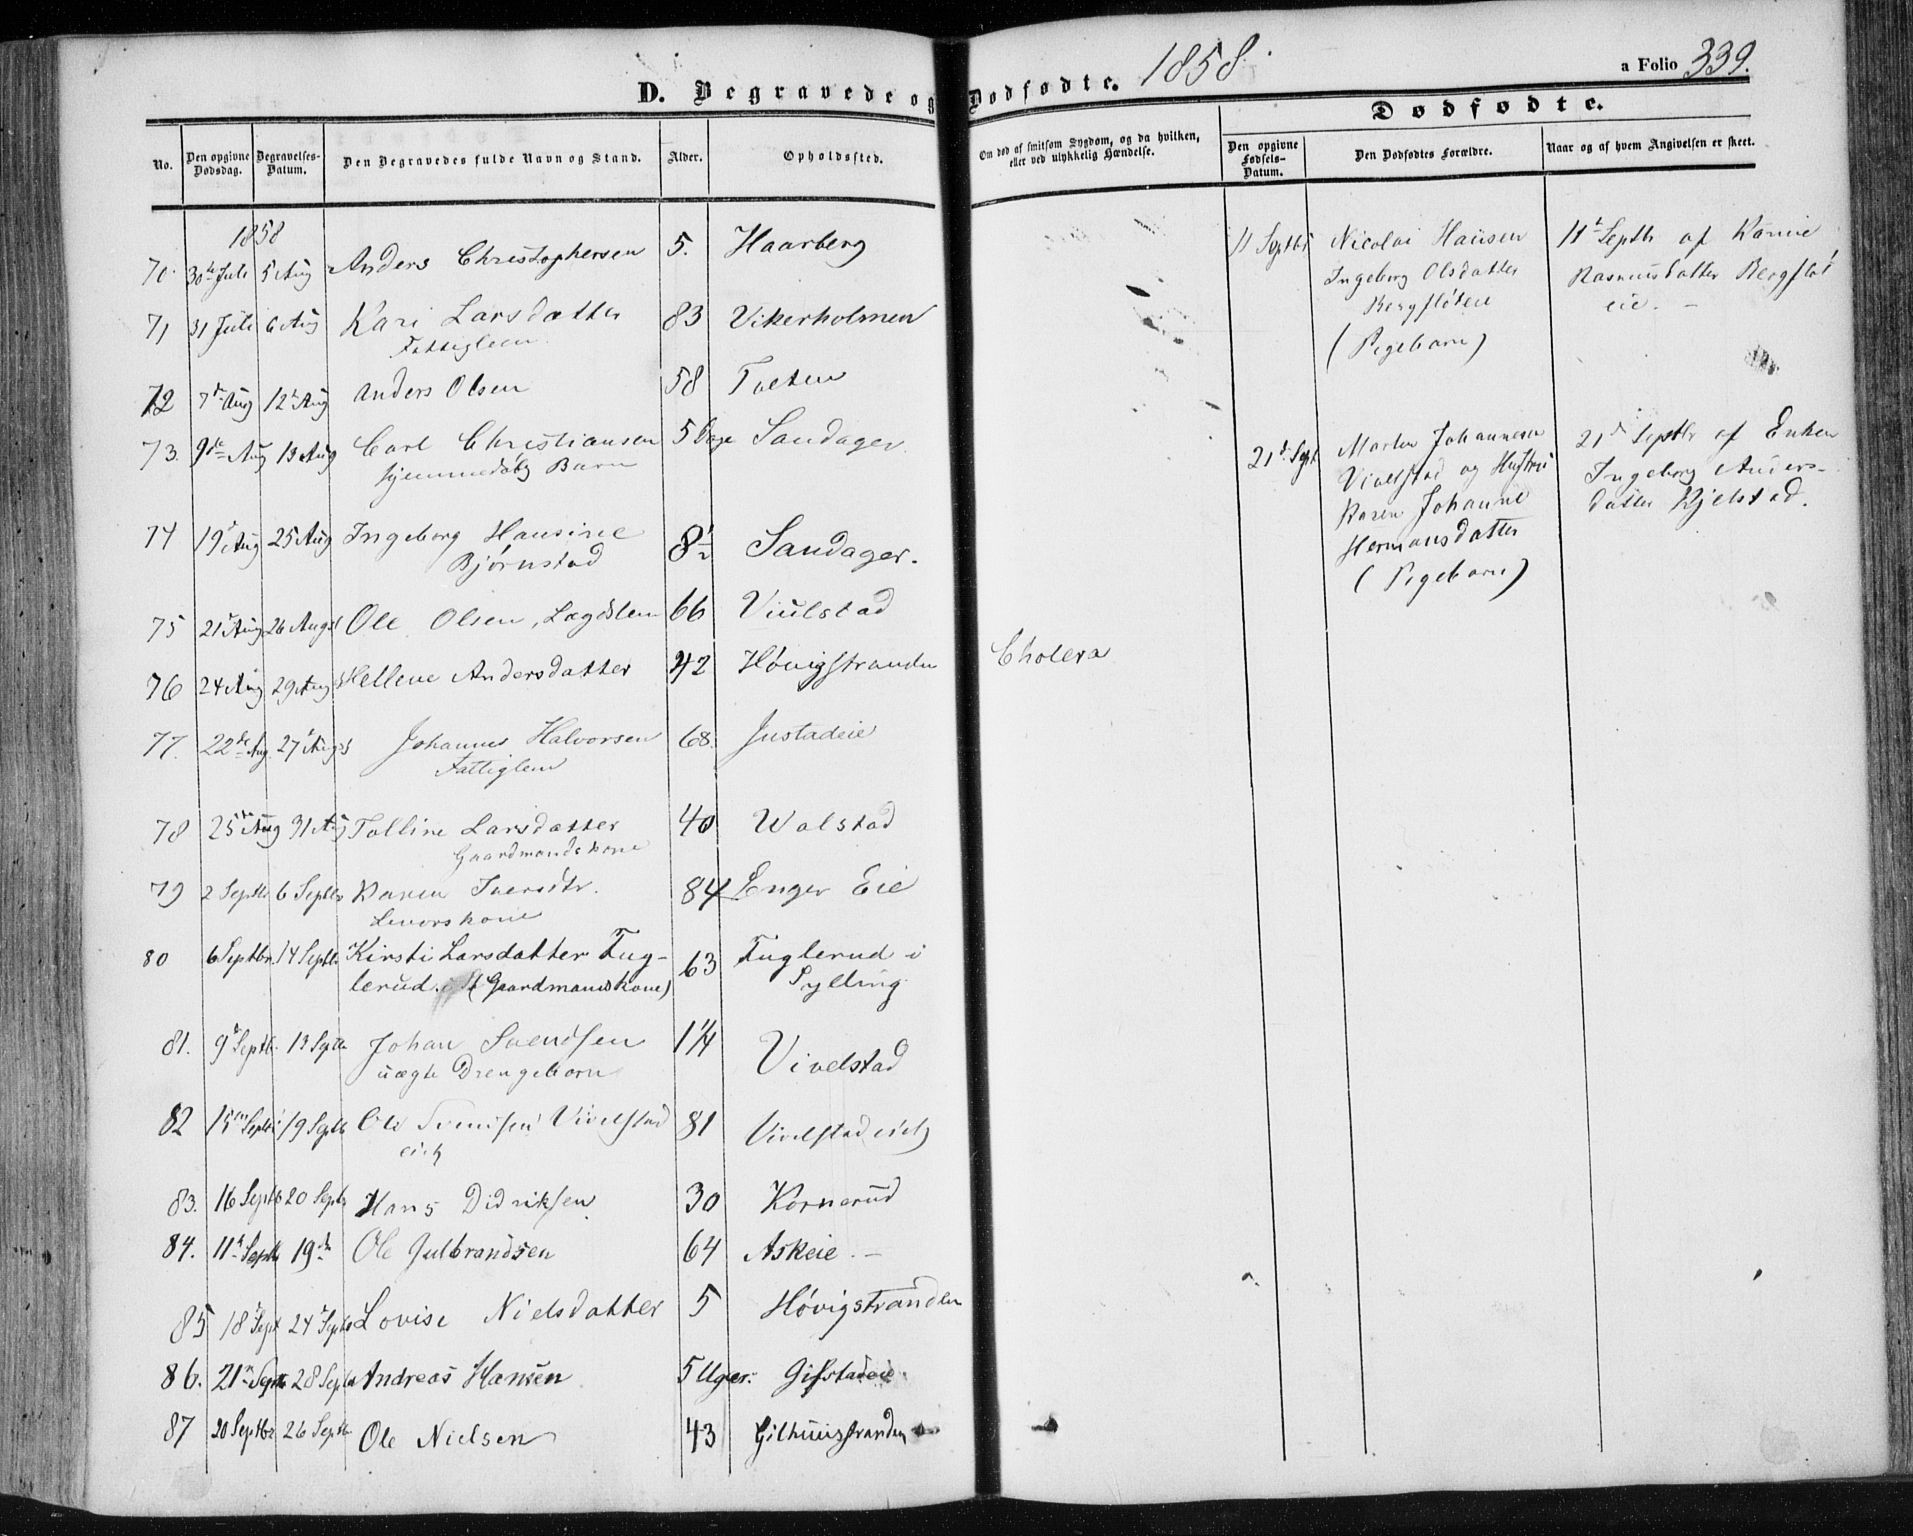 D. Begravede og Dødfødte. 1858. a Folio 339.
Dødfødte.
No. Den opgivne Dødsdag. Begravelses-Datum. Den Begravedes fulde Navn og Stand. Alder. Opholdssted. Om død af smitsom Sygdom, og da hvilken, eller ved ulykkelig Hændelse. Den opgivne Fødsels-Datum. Den Dødfødtes Forældre. Naar og af hvem Angivelsen er skeet.
1858
70. 30te Juli 5 Aug Anders Christophersen 5. Haarberg
71 31 Juli 6 Aug Kari Larsdatter 83 Vikerholmen
Fattiglem
72 7de Aug 12te Aug Anders Olsen 58 Toeten
73. 9de Aug 13 Aug Carl Christiansen 5 Dage Sandager
hjemmedøbt Barn
74 19 Aug 25 Aug Ingeborg Hansine 8½ Sandager.
Bjørnstad
75 21 Aug 26 Augst Ole Olsen, Lægdslem 66 Viulstad
76 24 Aug 29 Aug Hellene Andersdatter 42 Høvigstranden Cholera
77. 22de Aug 27 Augst Johannes Halvorsen 68. Justadeie
Fattiglem
78 25de Aug 31 Aug Talline Larsdatter 40 Walstad
Gaardmandskone
79 2 Septbr 6 Septbr Karen Iversdtr. 84 Enger Eie
80 6 Septbr. 14 Septbr Kirsti Larsdatter Fug- 63 Fuglerud i
lerud (Gaardmandskone) Sylling
81. 9de Septbr. 13 Septbr Johan Svendsen 1¼ Vivelstad
uægte Drengebarn
82 15 Septbr 19 Septbr Ole Svendsen Vivelstad 81 Vivelstad
83. 16 Septb 20 Septb Hans Didriksen 30 Kornerud
84. 11te Septb 19de Ole Gulbrandsen 64 Askeie. -
85 18 Sept 24 Septb Lovise Nielsdatter 5 Høvigstranden
86. 21 Septb 28 Septb Andreas Hansen 5 Uger. Gifstadeie
87 20 Septbr 26 Septbr Ole Nielsen 43 Gilhuusstranden
11 Septbr Nicolai Hansen 11te Septbr af Karine
Ingeborg Olsdatter Rasmusdatter Bergfløt
Bergfløteie eie. -
(Pigebarn)
21de Sept Martin Johannesen 21de Septbr af Enken
Vivelstad og Hustru Ingeborg Anders-
Karen Johanne datter Kjelstad.
Hermansdatter
(Pigebarn)